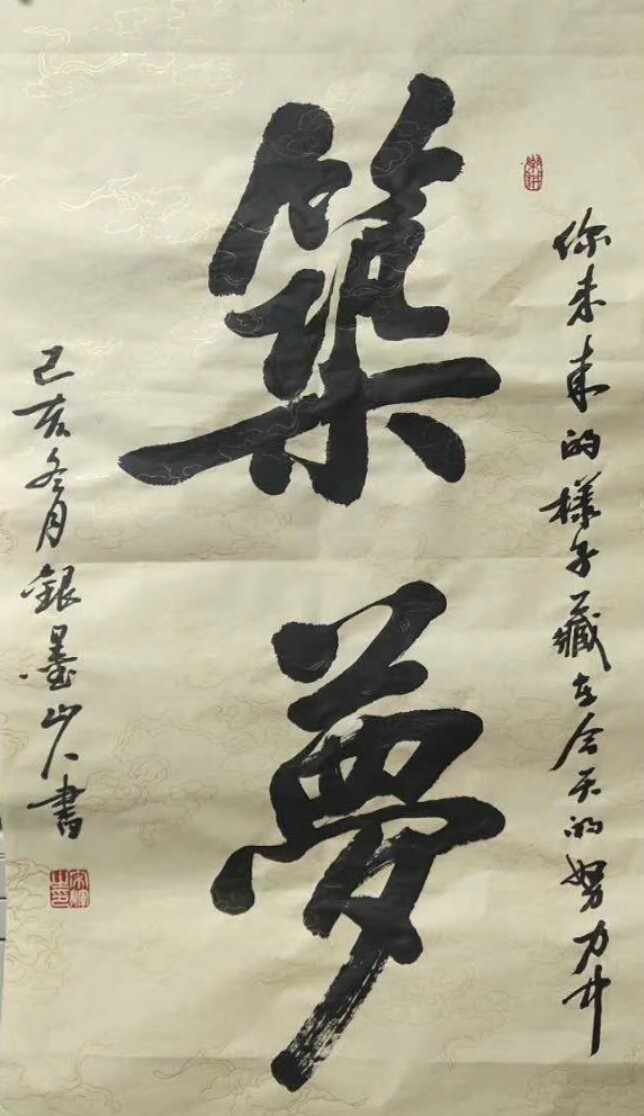 你未来的樣子藏在今天的努力中
築夢
己亥冬月銀墨山人書